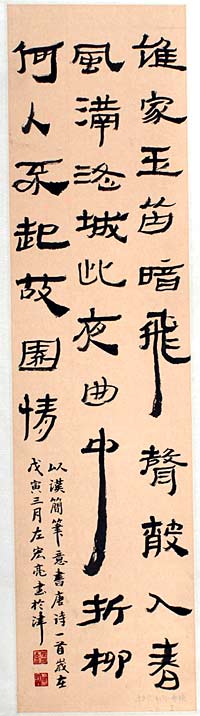 誰家玉笛暗飛聲散入春
風滿洛城此夜曲中折柳
何人不起故園情
以漢簡筆意書唐詩一首歲在
戊寅三月左宏亮書於津